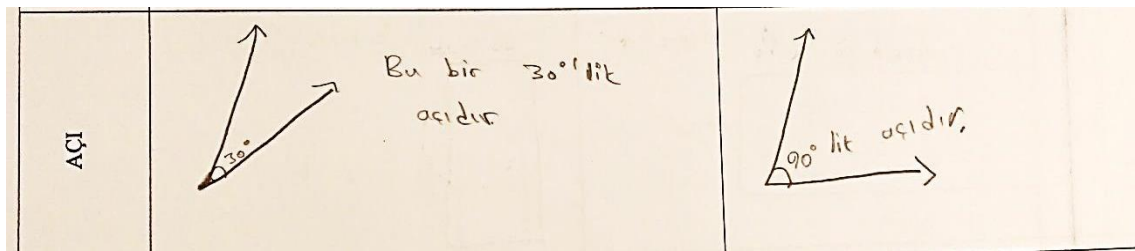 AÇI
30°
Bu bir 30°'lik
açıdır.
90° lik açıdır.